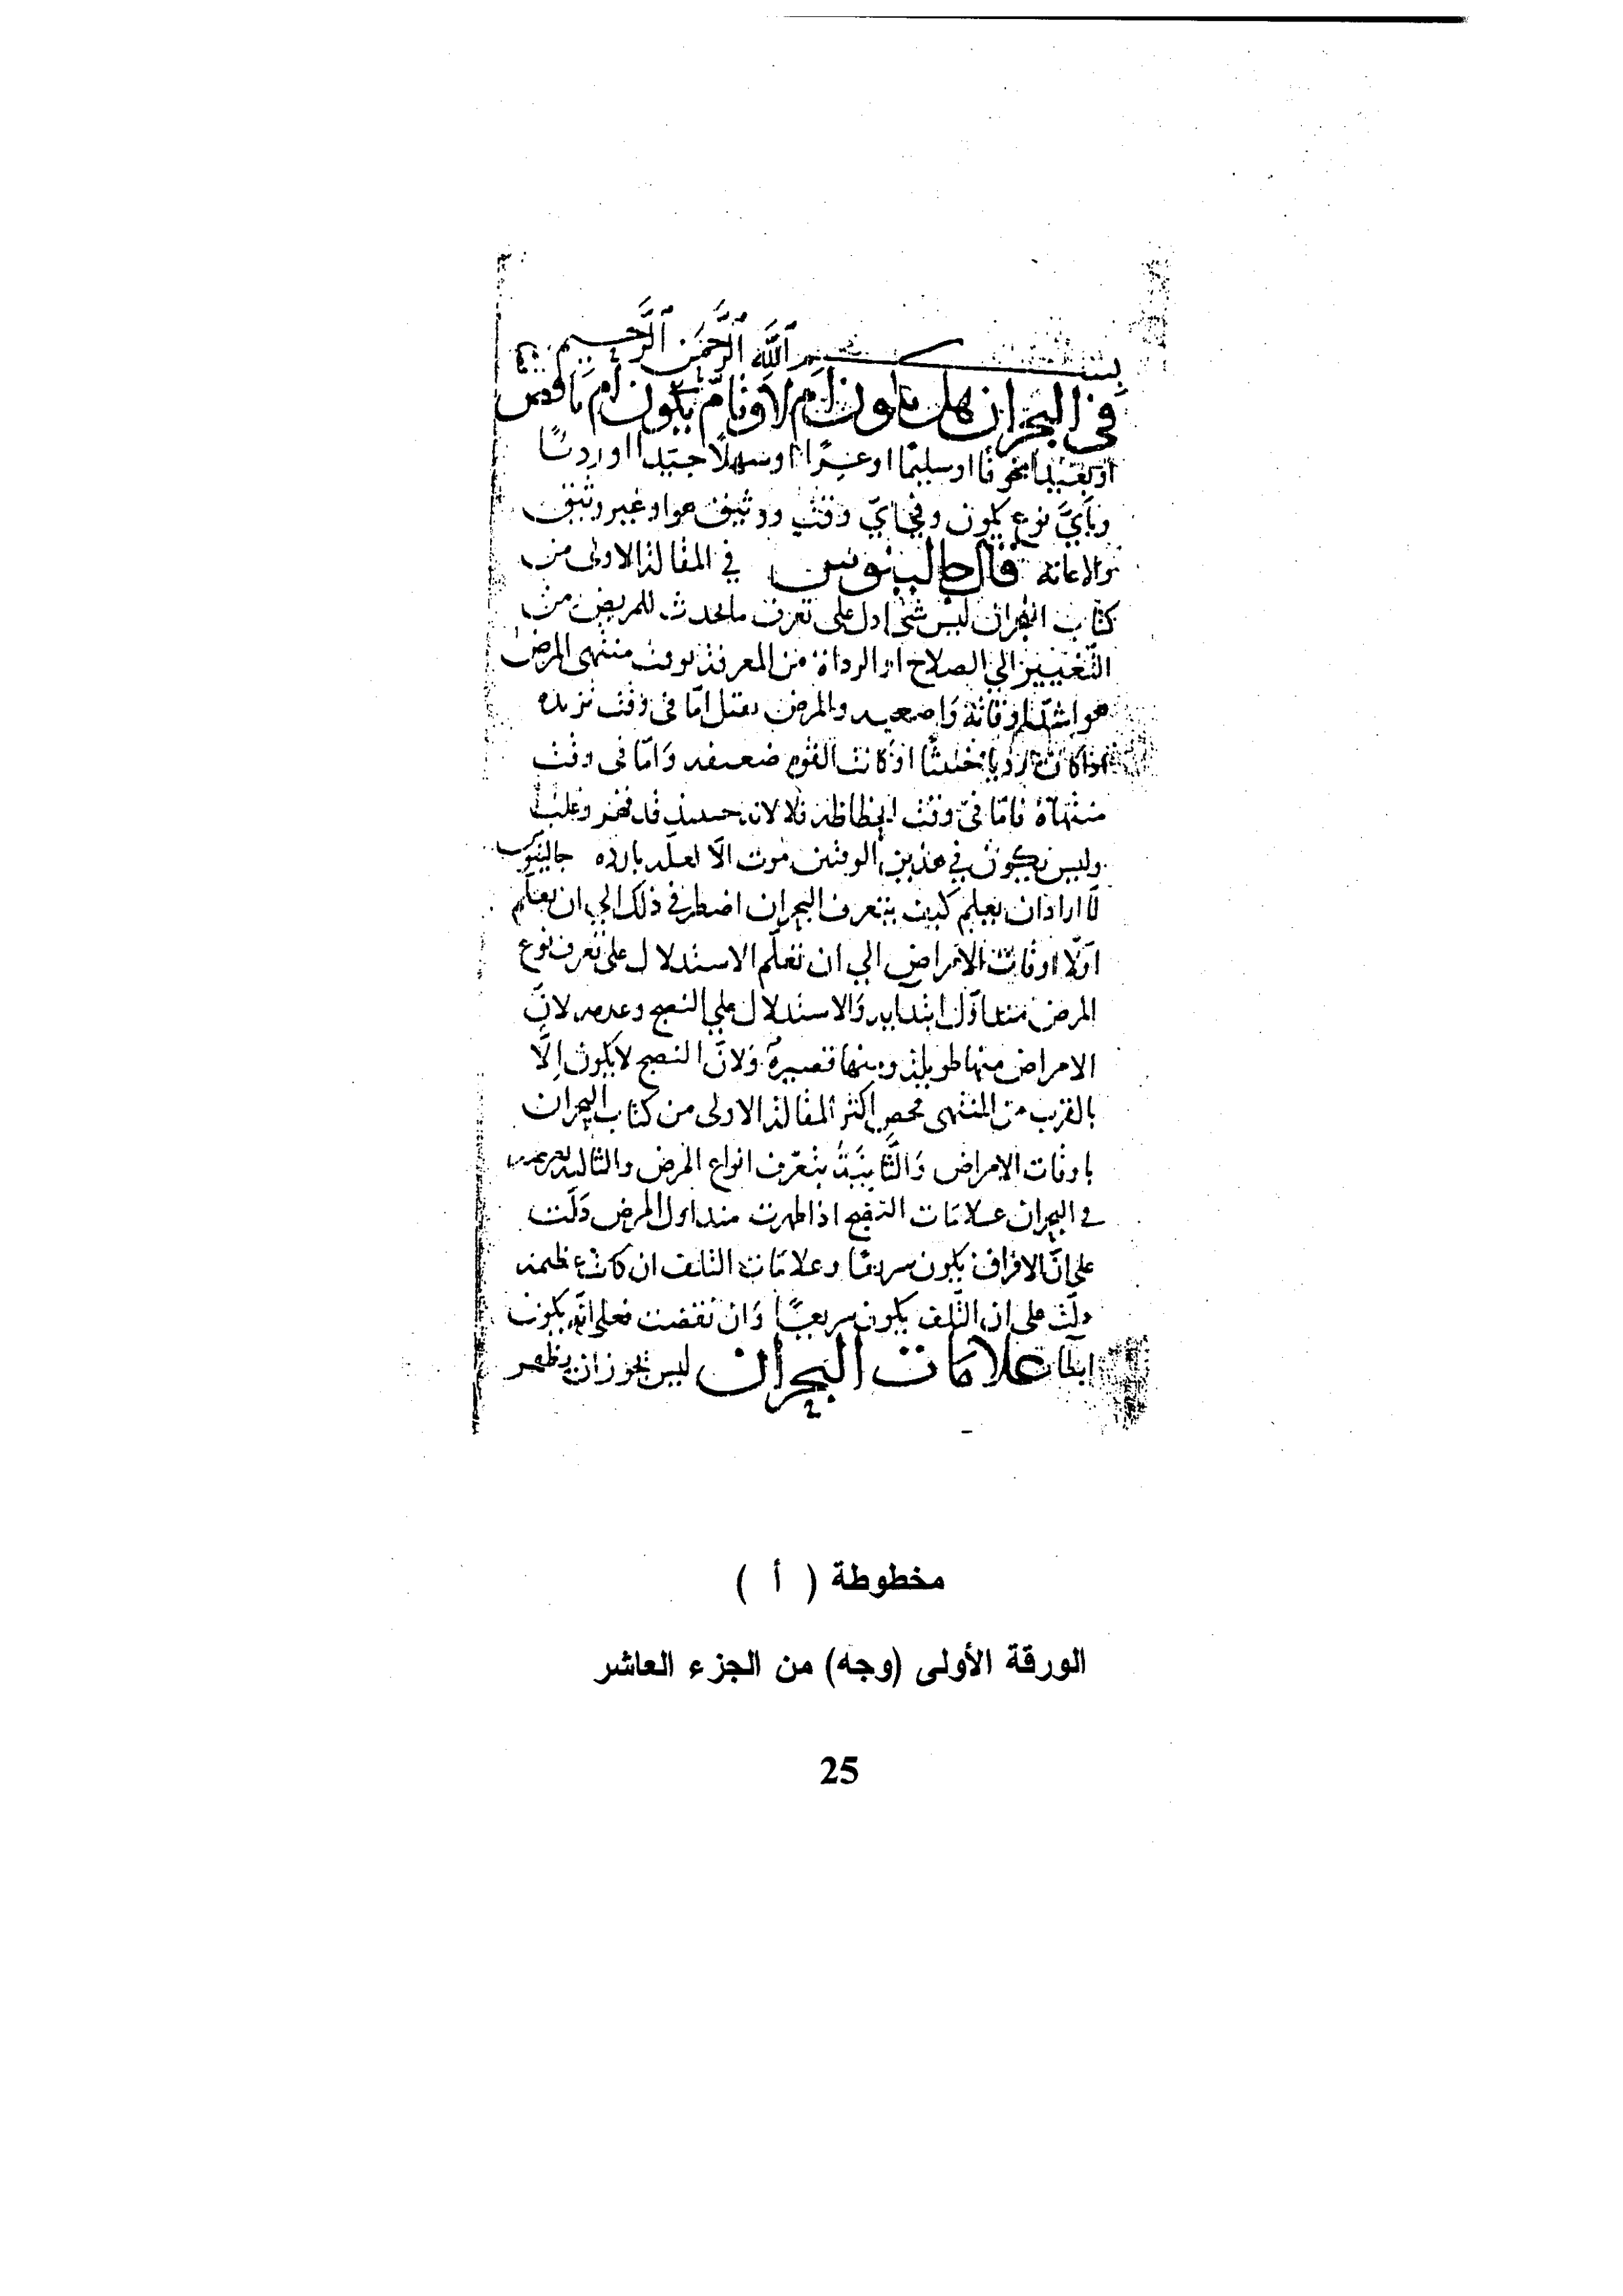 بسم الله الرحمن الرحيم
في البحران هل يكون أم لا وتام يكون أم ناقص
او بعيدا مخوفا او سليما او عسرا او سهلا جيدا او رديئا
وبأي نوع يكون وفي اي وقت ووثيق هو او غير وثيق
قال جالينوس في المقالة الاولى من
كتاب البحران ليس شئ ادل على تعرف ما يحدث للمريض من
التغيير الي الصلاح او الرداة من المعرفة بوقت منتهى المرض
هو اشد اوقاته والمرض يقتل اما في وقت تزيده
اذا كان خبيثا او كانت القوة ضعيفه واما في وقت
منتهاه فاما في وقت انحطاطه فلا لانه حينئذ قد قهر وغلب
وليس يكون في هذين الوقتين موت الا لعله جالينوس
لما اراد ان يعلم كيف يتعرف البحران اضطر في ذلك الي ان يعلم
اولا اوقات الامراض الي ان تعلم الاستدلال على تعرف نوع
المرض منذ اول ابتدايه والاستدلال علي النضج وعدمه لان
الامراض منها طويلة ومنها قصيرة ولان النضج لا يكون الا
بالقرب من المنتهى اكثر المقالة الاولى من كتاب البحران
باوقات الامراض والثانية بتعرف انواع المرض والثالثة
في البحران علامات النضج اذا ظهرت منذ اول المرض دلت
على ان الافراق يكون سريعا وعلامات التلف ان كانت عظيمة
دلت على ان التلف يكون سريعا وان نقصت فعلى انه يكون
علامات البحران ليس يجوز ان يظهر
مخطوطة ( أ )
الورقة الأولى (وجه) من الجزء العاشر
25